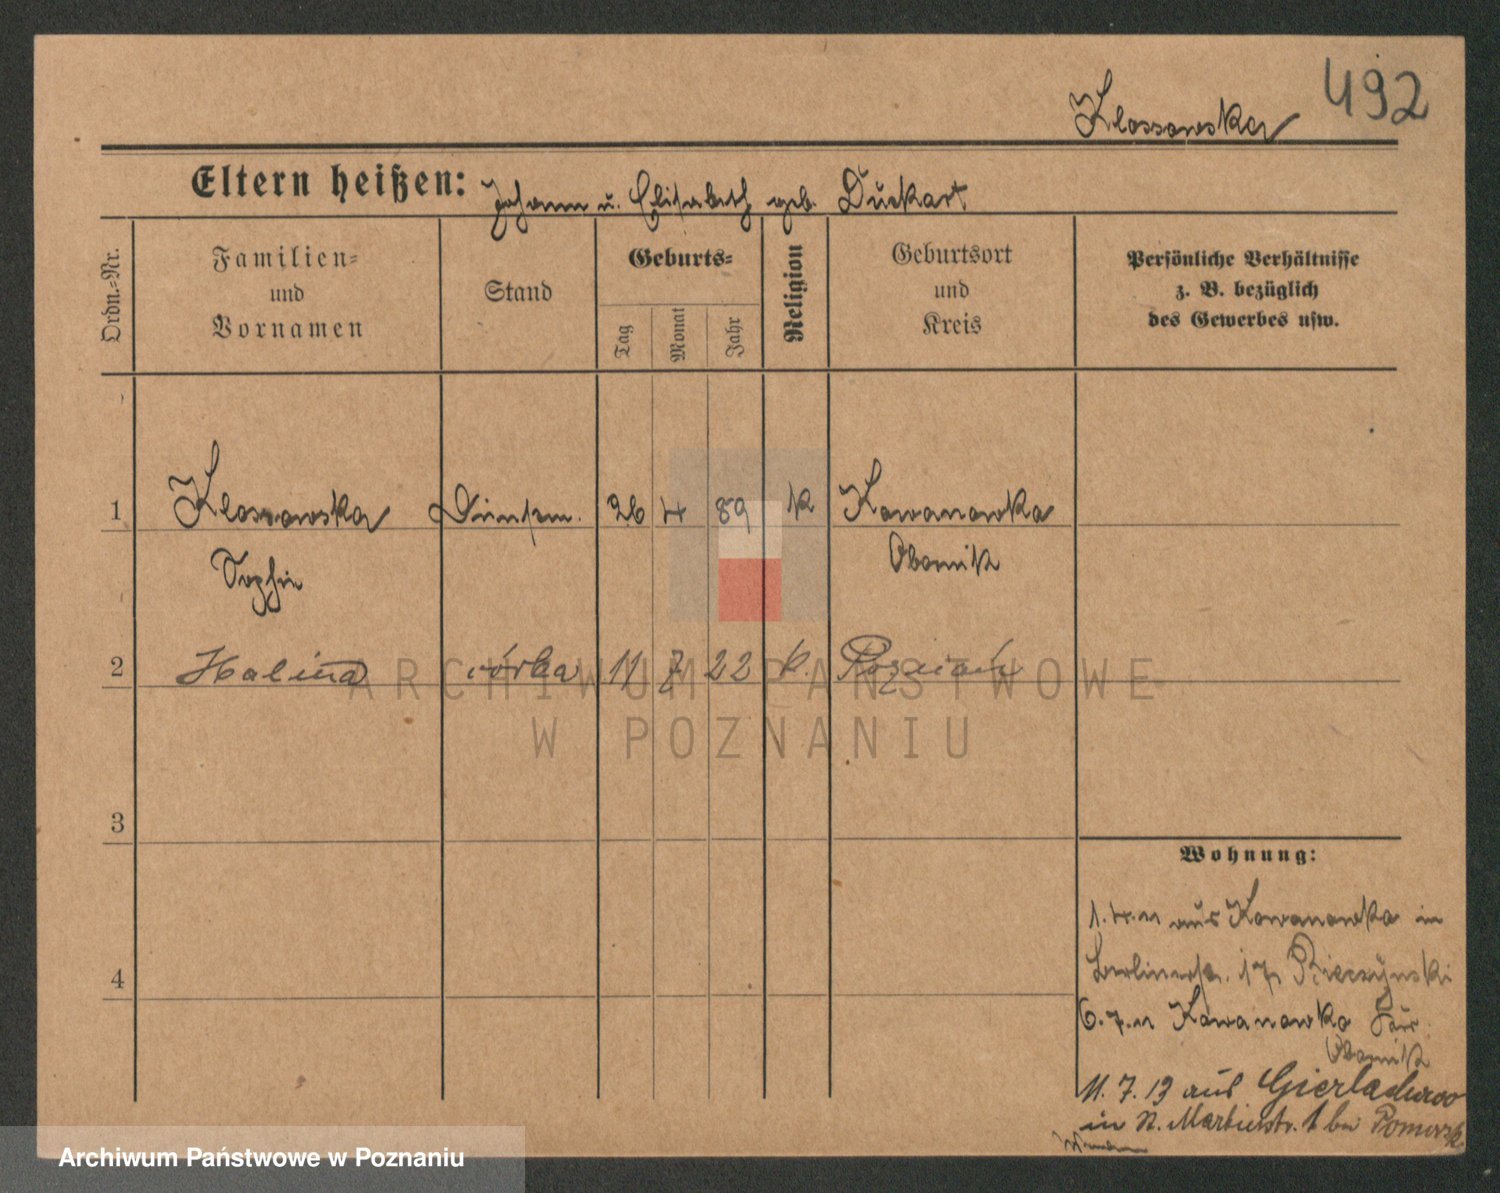 492
Klossowska
Eltern heißen: Johann u. Elisabeth geb. Duckart
Ordn.-Nr.
Familien-
und
Vornamen
Stand
Geburts-
Tag
Monat
Jahr
Religion
Geburtsort
und
Kreis
Persönliche Verhältnisse
z. B. bezüglich
des Gewerbes usw.
1 Klossowska 26 4 89 k Kowanowka
Sophie Obornik
2 Halina córka 11 7 22 k. Poznań
3
4
ARCHIWUM PAŃSTWOWE
W POZNANIU
Wohnung:
1.4.11 aus Kowanowka in
Berlinerstr. 17
6.7.11 Kowanowka
Obornik
11.7.13 aus
in St. Martinstr. 1 bei
Archiwum Państwowe w Poznaniu